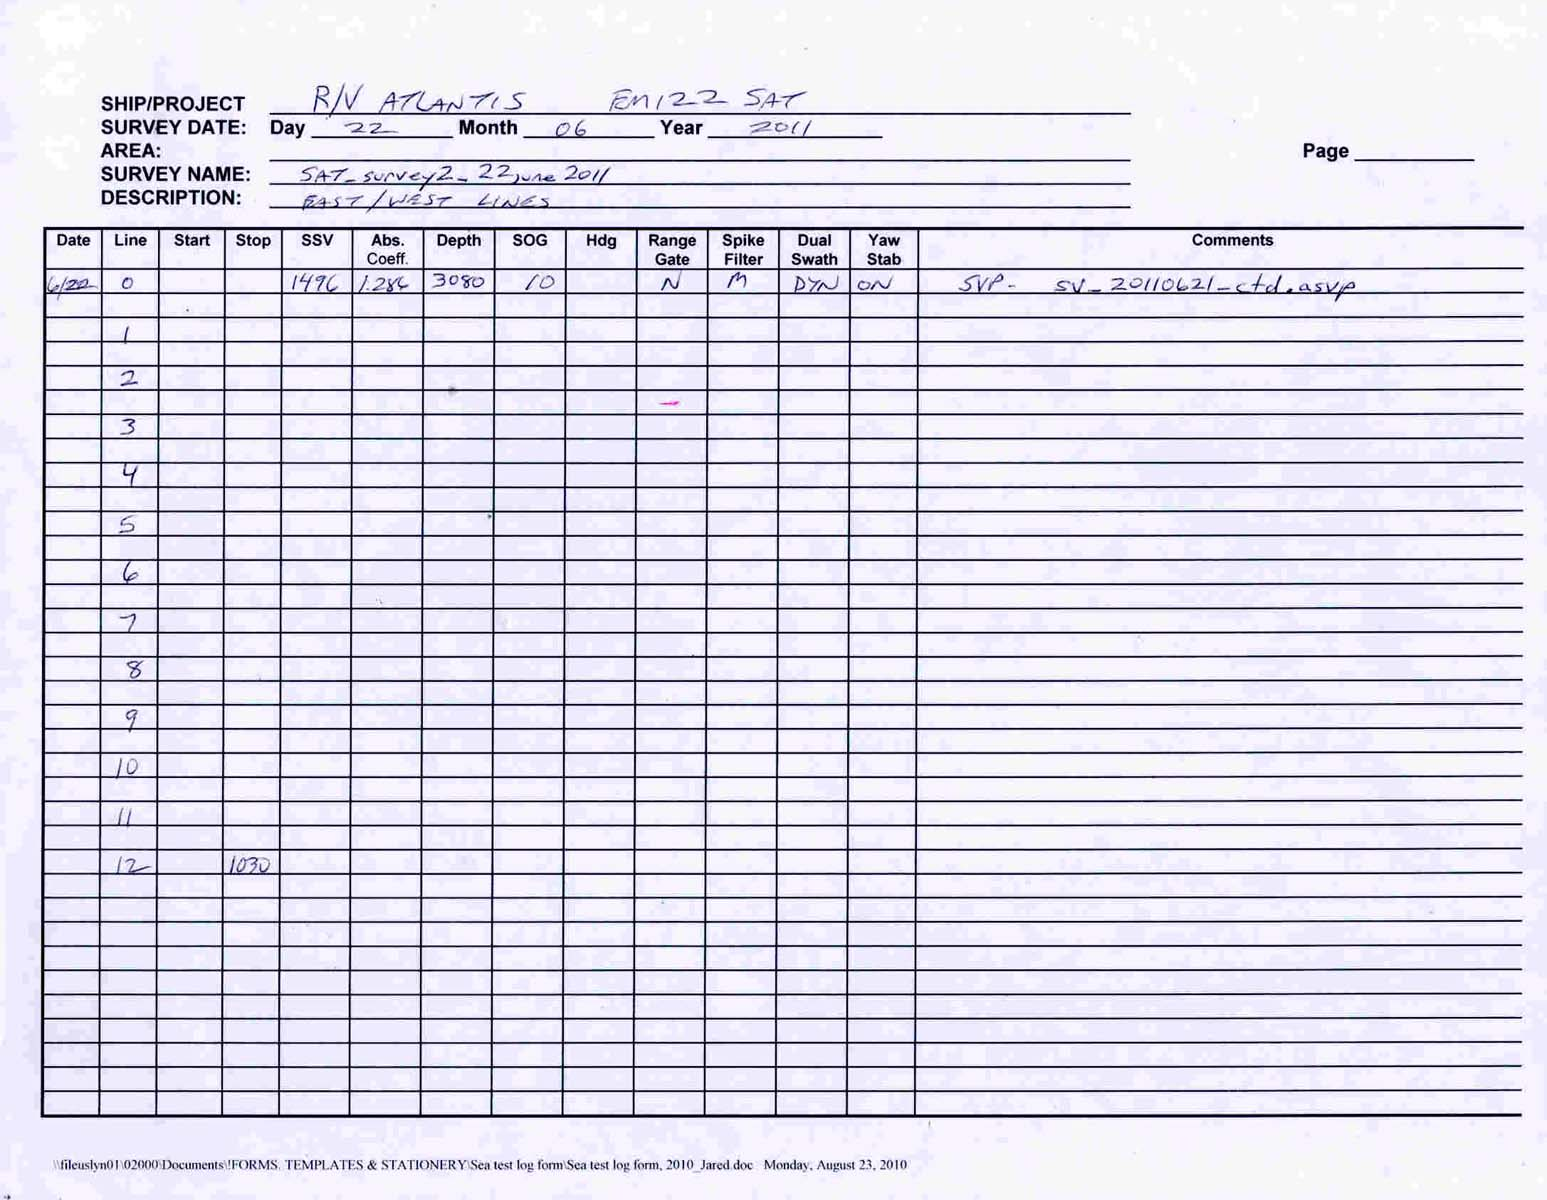 SHIP/PROJECT R/V ATLANTIS EM122 SAT
SURVEY DATE: Day 22 Month 06 Year 2011
AREA:
Page
SURVEY NAME: SAT_survey2_22june2011
DESCRIPTION: EAST/WEST LINES
Date Line Start Stop SSV Abs. Coeff. Depth SOG Hdg Range Gate Spike Filter Dual Swath Yaw Stab Comments
6/22 0 1496 1.286 3080 10 N M DYN ON SVP- SV_20110621-ctd.asvp
1
2
3
4
5
6
7
8
9
10
11
12 1030
\\fileuslyn01\02000\Documents\!FORMS. TEMPLATES & STATIONERY\Sea test log form\Sea test log form, 2010_Jared.doc Monday, August 23, 2010